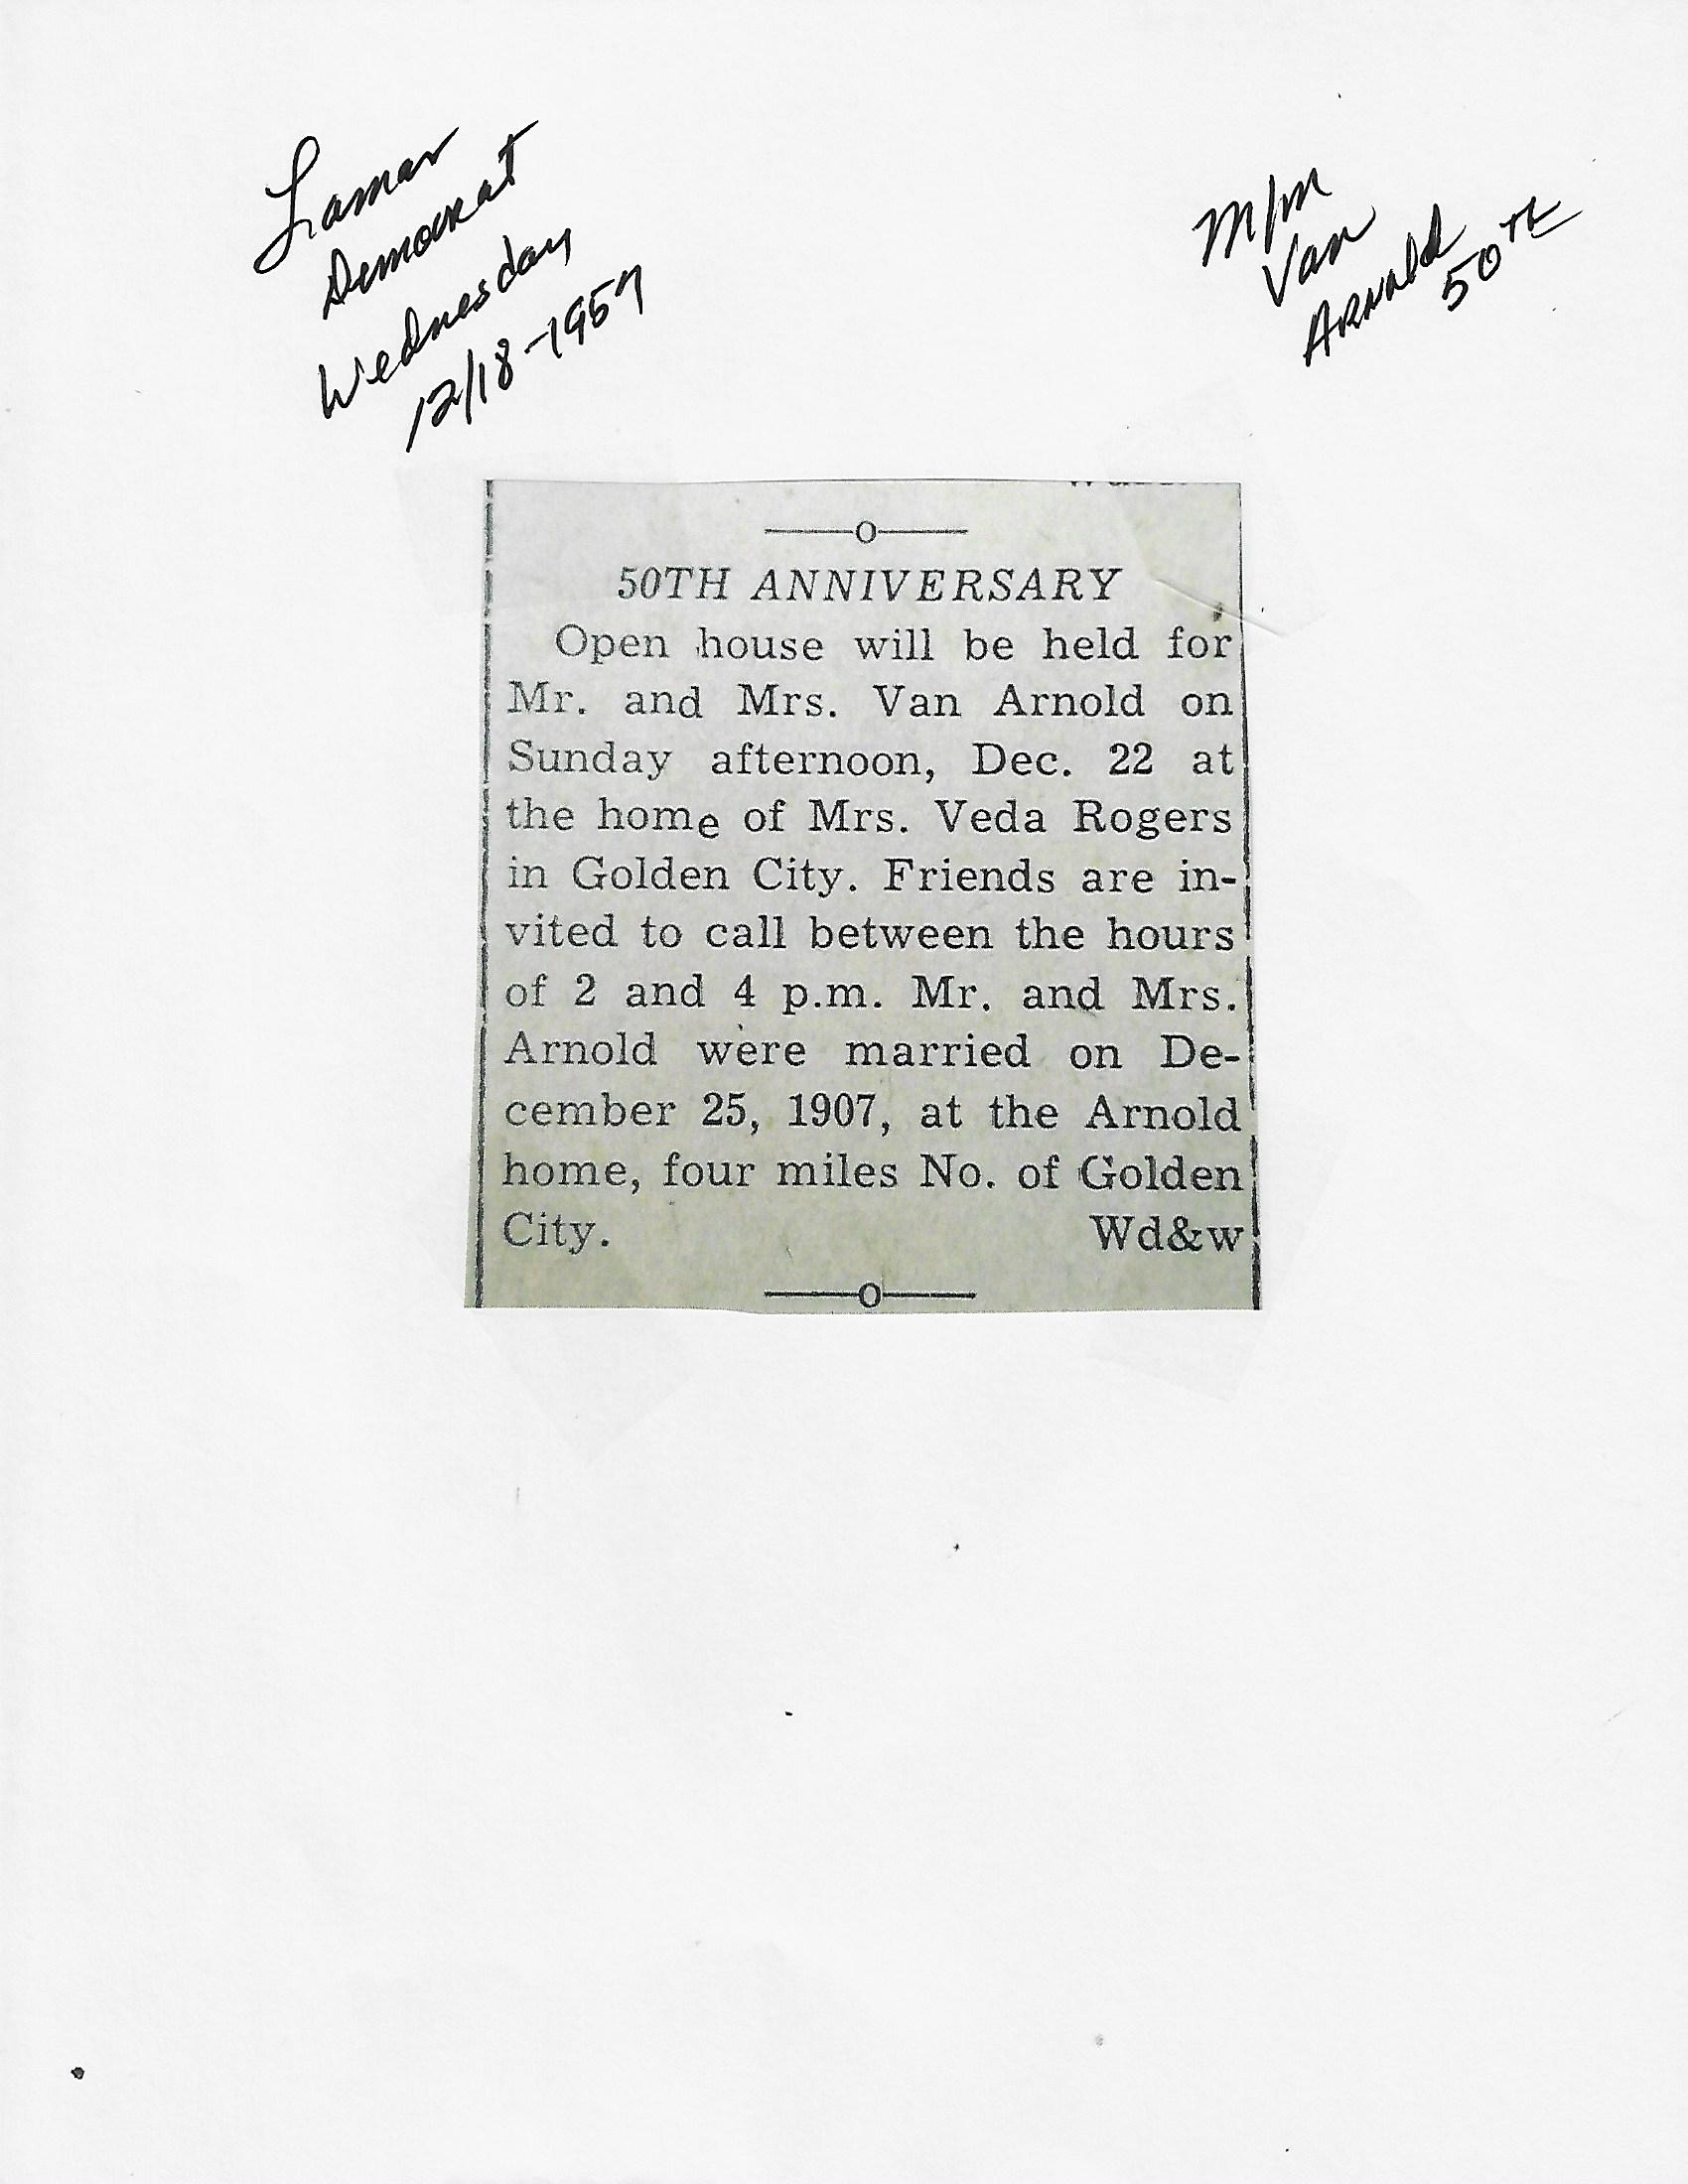 Lamar
Democrat
Wednesday
12/18-1957
M/M
Van
Arnold
50TH
50TH ANNIVERSARY
Open house will be held for
Mr. and Mrs. Van Arnold on
Sunday afternoon, Dec. 22 at
the home of Mrs. Veda Rogers
in Golden City. Friends are in-
vited to call between the hours
of 2 and 4 p.m. Mr. and Mrs.
Arnold were married on De-
cember 25, 1907, at the Arnold
home, four miles No. of Golden
City. Wd&w